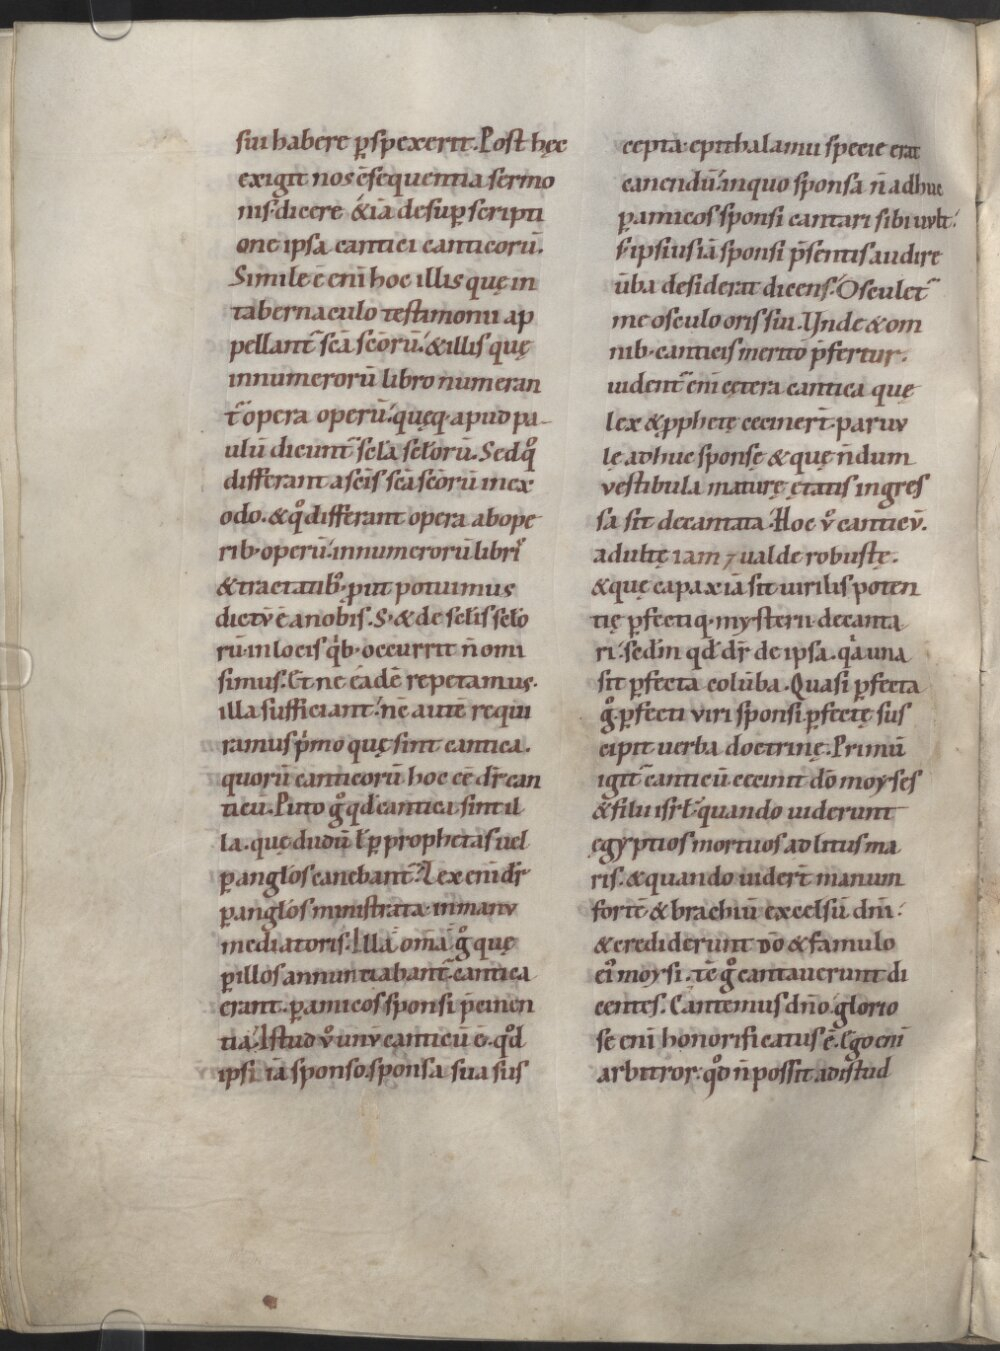 sui habere ꝑspexerit. Post hęc
exigit nos c̄sequentia sermo
nis dicere &iā de suꝑscripti
one ipsa cantici canticorū.
Simile ē eni hoc illis quę in
tabernaculo testimonii ap
pellant᷑ scā scōrū. &illis quę
innumerorū libro numeran
t᷑ opera operū. quęq; apud pa-
ulū dicunt᷑ scła scłorū. Sed qͦ
differant a scīs scā scōrū in ex
odo. & qͦ differant opera abope
rib; operū. innumerorū libri
&tractatib; ꝓut potuimus
dictū ē anobis. S; & de scłis scło
rū in locis qͥb; occurrit n̄ omi
simus. Et ne eadē repetamus.
illa sufficiant. nē autē requi
ramus pͥmo quę sint cantica.
quorū canticorū hoc eē dr̄ can
ticū. Puto gͦ qd̄ cantica sint il
la. quę dudū ł ꝑ prophetas uel
ꝑ angłos canebant᷑. Lex eni dr̄
ꝑ angłos ministrata in manu
mediatoris. Illa om̄a gͦ quę
ꝑ illos annuntiabant᷑ cantica
erant. ꝑ amicos sponsi p̄cinen
tia. Istud ů unū canticū ē. qͦd
ipsi iā sponso sponsa sua sus
cepta. epithalamii specie erat
canendū. in quo sponsa n̄ adhuc
ꝑ amicos sponsi cantari sibi uult.
s; ipsius iā sponsi p̄sentis audire
ūba desiderat dicens. Osculet᷑
me osculo oris sui. Unde & om
nib; canticis merito p̄fertur.
uident᷑ eni cętera cantica quę
lex & ꝓphetę cecinert̄. paruu
lę adhuc sponsę & quę n̄dum
vestibula maturę ętatis ingres
sa sit decantata. Hoc ů canticū.
adultę iam ⁊ ualde robustę.
& quę capax iā sit uirilis poten
tię ꝑfectiq; mysterii decanta
ri. sedm̄ qd̄ dr̄ de ipsa. qͥa una
sit ꝑfecta colūba. Quasi ꝑfecta
gͦ ꝑfecti viri sponsi ꝑfectę sus
cipit uerba doctrinę. Primū
igit᷑ canticū cecinit dō moyses
& filii isrł quando uiderunt
ęgyptios mortuos ad litus ma
ris. & quando uidert̄ manum
fortē & brachiū excelsū dm̄.
& crediderunt dō & famulo
ei᷒ moysi. tē gͦ cantauerunt di
centes. Cantemus dn̄o. glorio
se eni honorificatus ē. Ego eni
arbitror. qͦd n̄ possit ad istud